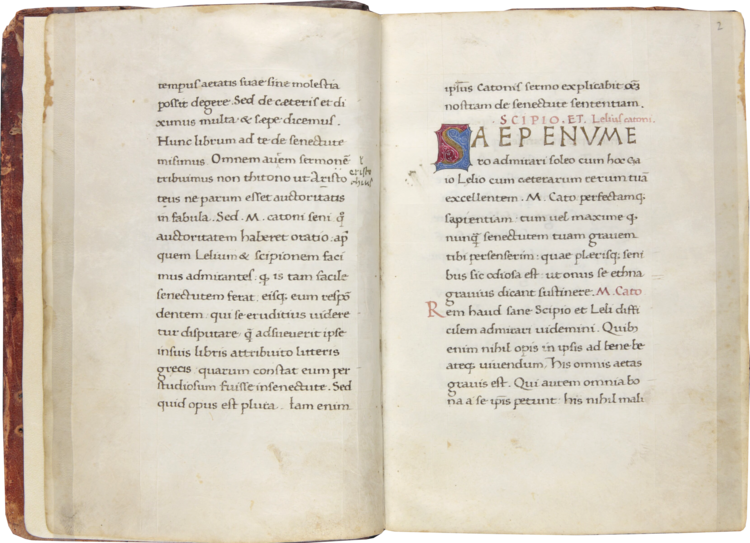 tempus aetatis suae sine molestia
possit degere. Sed de caeteris et di
ximus multa & saepe dicemus.
Hunc librum ad te de senectute
misimus. Omnem autem sermonē
tribuimus non thitono ut Aristo
teus ne parum esset auctoritatis
in fabula. Sed .M. catoni seni q̃
auctoritatem haberet oratio. ap̃
quem Lelium & scipionem faci
mus admirantes. q. is tam facile
senectutem ferat. eisq; eum respō
dentem. qui se eruditius videre
tur disputare. q̃ adsueverit ipse
insuis libris attribuito litteris
grecis quarum constat eum per
studiosum fuisse insenectute. Sed
quid opus est plura. Iam enim
aristo
2
ipsius Catonis sermo explicabit
nostram de senectute sententiam.
SCIPIO. ET. Lelius catoni.
SAEPENVME
ro admirari soleo cum hoc Ga
io Lelio cum ceterarum rerum tuā
excellentem .M. Cato perfectamq.
sapientiam. tum vel maxime q.
nunq̃ senectutem tuam gravem
tibi persenserim: quae plaerisq; seni
bus sic odiosa est: ut onus se ethna
gravius dicant sustinere. M. Cato
Rem haud sane Scipio et Leli diffi
cilem admirari videmini. Quib;
enim nihil opis in ipsis ad bene be
ateq; vivendum. His omnis aetas
gravis est. Qui autem omnia bo
na a se ip̃is petunt his nihil mali